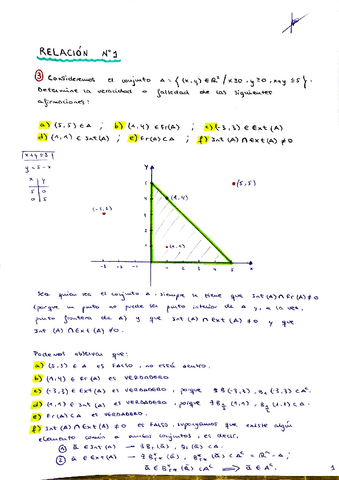 RELACIÓN Nº1
③ Consideremos el conjunto A = { (x,y) ∈ R² / x≥0, y≥0, x+y≤5 }.
Determine la veracidad o falsedad de las siguientes
afirmaciones:
a) (5,5) ∈ A ; b) (1,4) ∈ Fr(A) ; c) (-3,3) ∈ Ext(A)
d) (1,1) ∈ Int(A) ; e) Fr(A) ⊂ A ; f) Int(A) ∩ Ext(A) ≠ ∅
x+y=5
y = 5-x
x y
5 0
0 5
Y
(5,5)
(1,4)
(-3,3)
(1,1)
X
Sea quien sea el conjunto A, siempre se tiene que Int(A) ∩ Fr(A) ≠ ∅
(porque un punto no puede ser punto interior de A y, a la vez,
punto frontera de A) y que Int(A) ∩ Ext(A) ≠ ∅ y que
Int(A) ∩ Ext(A) ≠ ∅.
Podemos observar que:
a) (5,5) ∈ A es FALSO, no está dentro.
b) (1,4) ∈ Fr(A) es VERDADERO
c) (-3,3) ∈ Ext(A) es VERDADERO, porque ∃ B(-3,3), (-3,3) ⊂ Aᶜ.
d) (1,1) ∈ Int(A) es VERDADERO, porque ∃ (1,1), (1,1) ⊂ A.
e) Fr(A) ⊂ A es VERDADERO.
f) Int(A) ∩ Ext(A) ≠ ∅ es FALSO, supongamos que existe algún
elemento común a ambos conjuntos, es decir,
① ā ∈ Int(A) → ∃ (ā), (ā) ⊂ A.
② ā ∈ Ext(A) → ∃ (ā), (ā) ⊂ Aᶜ = R² - A;
ā ∈ (ā) ⊂ Aᶜ ⟹ ā ∈ Aᶜ.
1